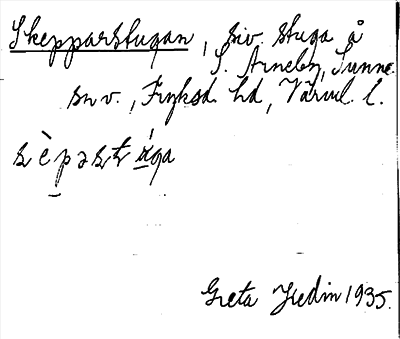 Skepparstugan, riv. stuga å
S. Årneby, Sunne
sn v., Fryksd. hd, Värml. l.
sèpastuga
Greta Hedin 1935.